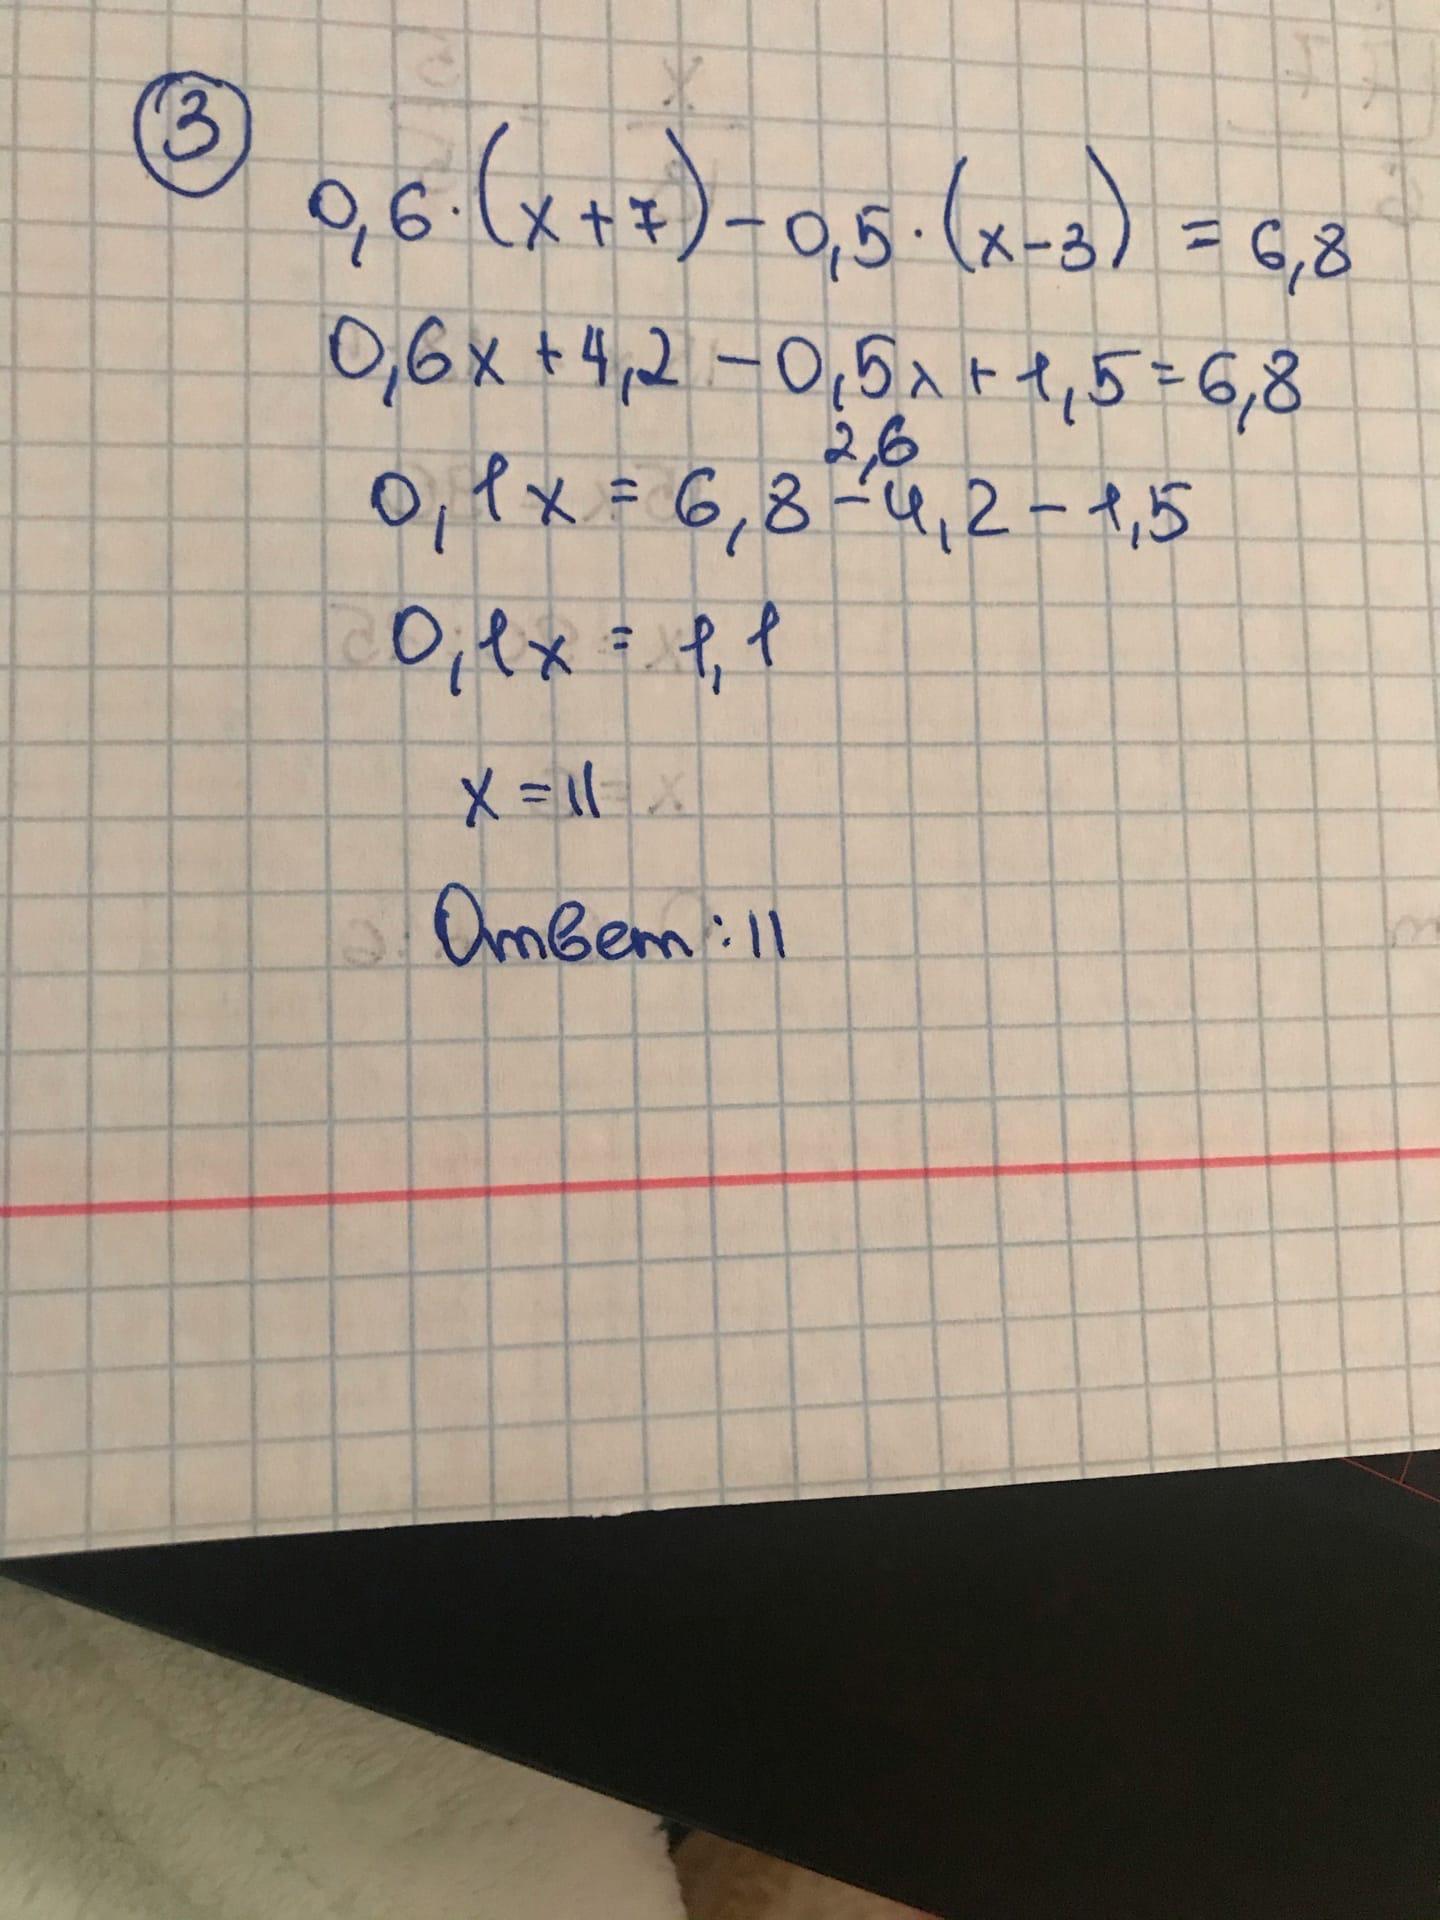 3
0,6·(x+7)-0,5·(x-3) = 6,8
0,6x+4,2-0,5x+1,5=6,8
2,6
0,1x = 6,8-4,2-1,5
0,1x = 1,1
x=11
Ответ:11